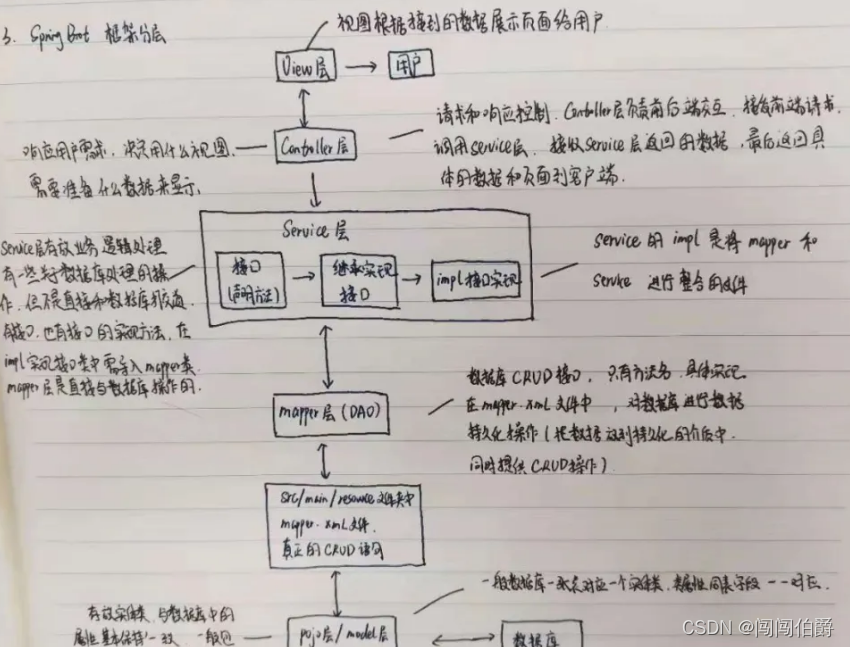 3. SpringBoot 框架分层
视图根据接到的数据展示页面给用户
View层
用户
请求和响应控制. Controller层负责前后端交互. 接受前端请求.
调用service层. 接收Service层返回的数据, 最后返回具
体的数据和页面到客户端.
Controller层
响应用户需求. 决定用什么视图.
需要准备什么数据来显示.
Service层
接口
(声明方法)
继承实现
接口
impl接口实现
service的 impl 是将 mapper 和
service 进行整合的文件
Service层存放业务逻辑处理
有一些关于数据库处理的操
作. 但不是直接和数据库打交道
有接口, 也有接口的实现方法, 在
impl实现接口类中需导入mapper类
mapper层是直接与数据库操作的.
mapper层(DAO)
数据库CRUD接口, 只有方法名. 具体实现
在mapper.xml文件中, 对数据库进行数据
持久化操作(把数据放到持久化的介质中.
同时提供CRUD操作)
src/main/resource文件夹中
mapper.xml文件.
真正的CRUD语句
一般数据库一张表对应一个实体类, 类属性同表字段一一对应.
存放实体类, 与数据库中的
属性基本保持一致. 一般包
pojo层/model层
数据库
CSDN @闯闯伯爵